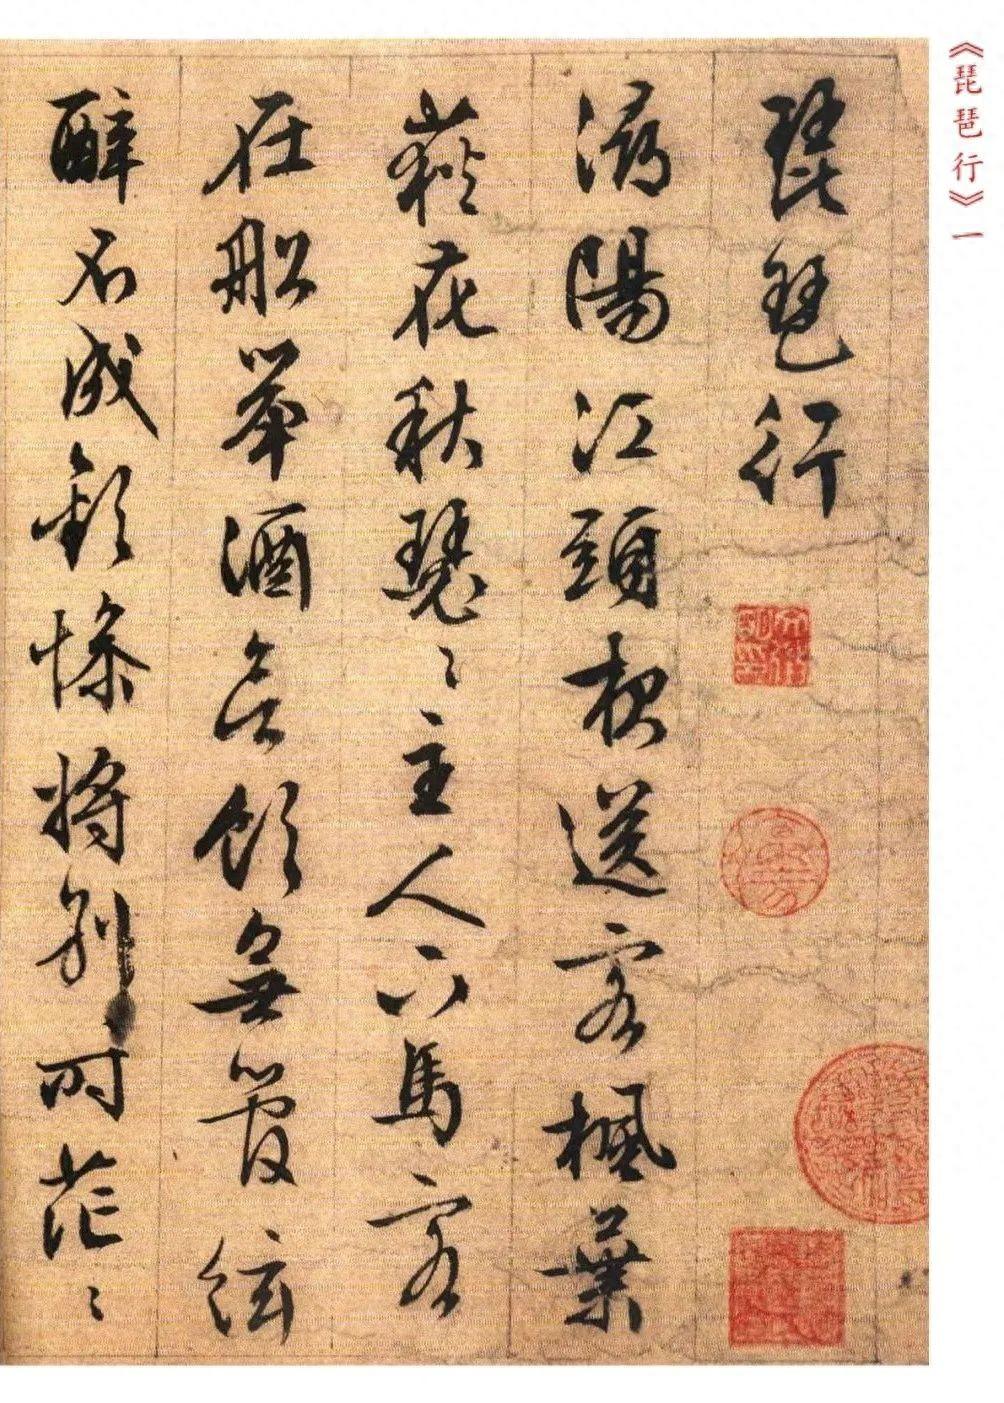 《琵琶行》一
琵琶行
潯陽江頭夜送客楓葉
荻花秋瑟〻主人下馬客
在船舉酒欲飲無管絃
醉不成歡慘將別時茫〻